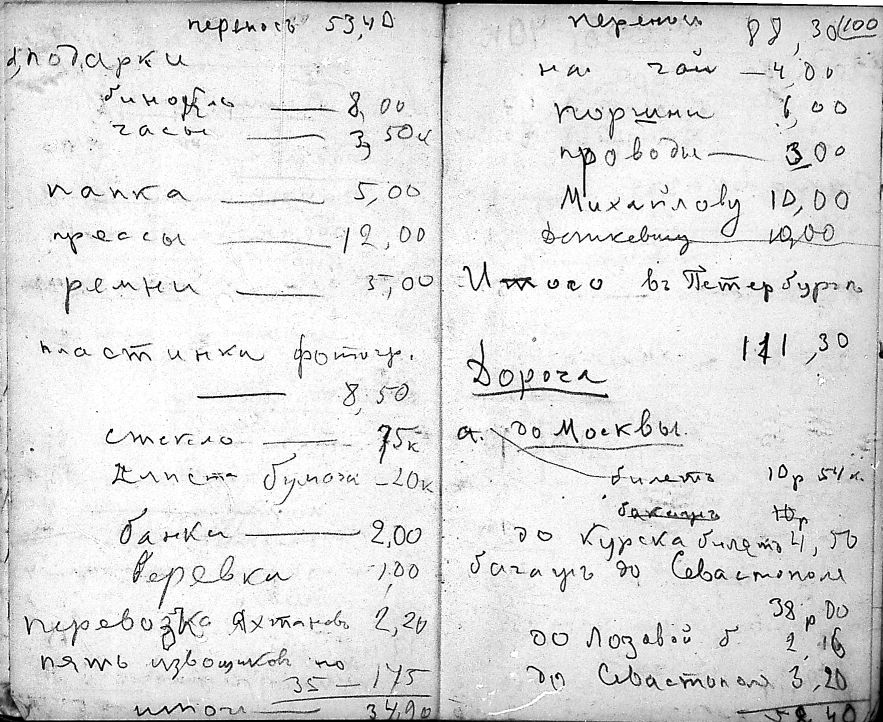 переносъ 53,40
d, подарки
бинокль — 8,00
часы — 3,50к
папка — 5,00
прессы — 12,00
ремни — 5,00
пластинки фотогр.
— 8,50
стекло — 75к
бумаги – 20к
банки — 2,00
Веревка 1,00
перевозка Яхтановъ 2,20
пять извощиковъ по
35 – 175
итого — 34,90
переносъ 88,30 100
на чай – 4,00
поршни 6,00
проводы — 3,00
Михайлову 10,00
10,00
Итого въ Петербургѣ
111,30
Дорога
а. до Москвы.
билетъ 10р 54к.
багажъ 10р
до Курска билетъ 4,50
багажъ до Севастополя
38р 00
до Лозовой б 2,16
до Севастополя 3,20